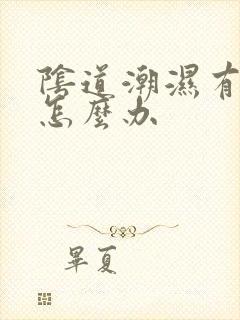 陰道潮濕有
怎麼办
畢夏